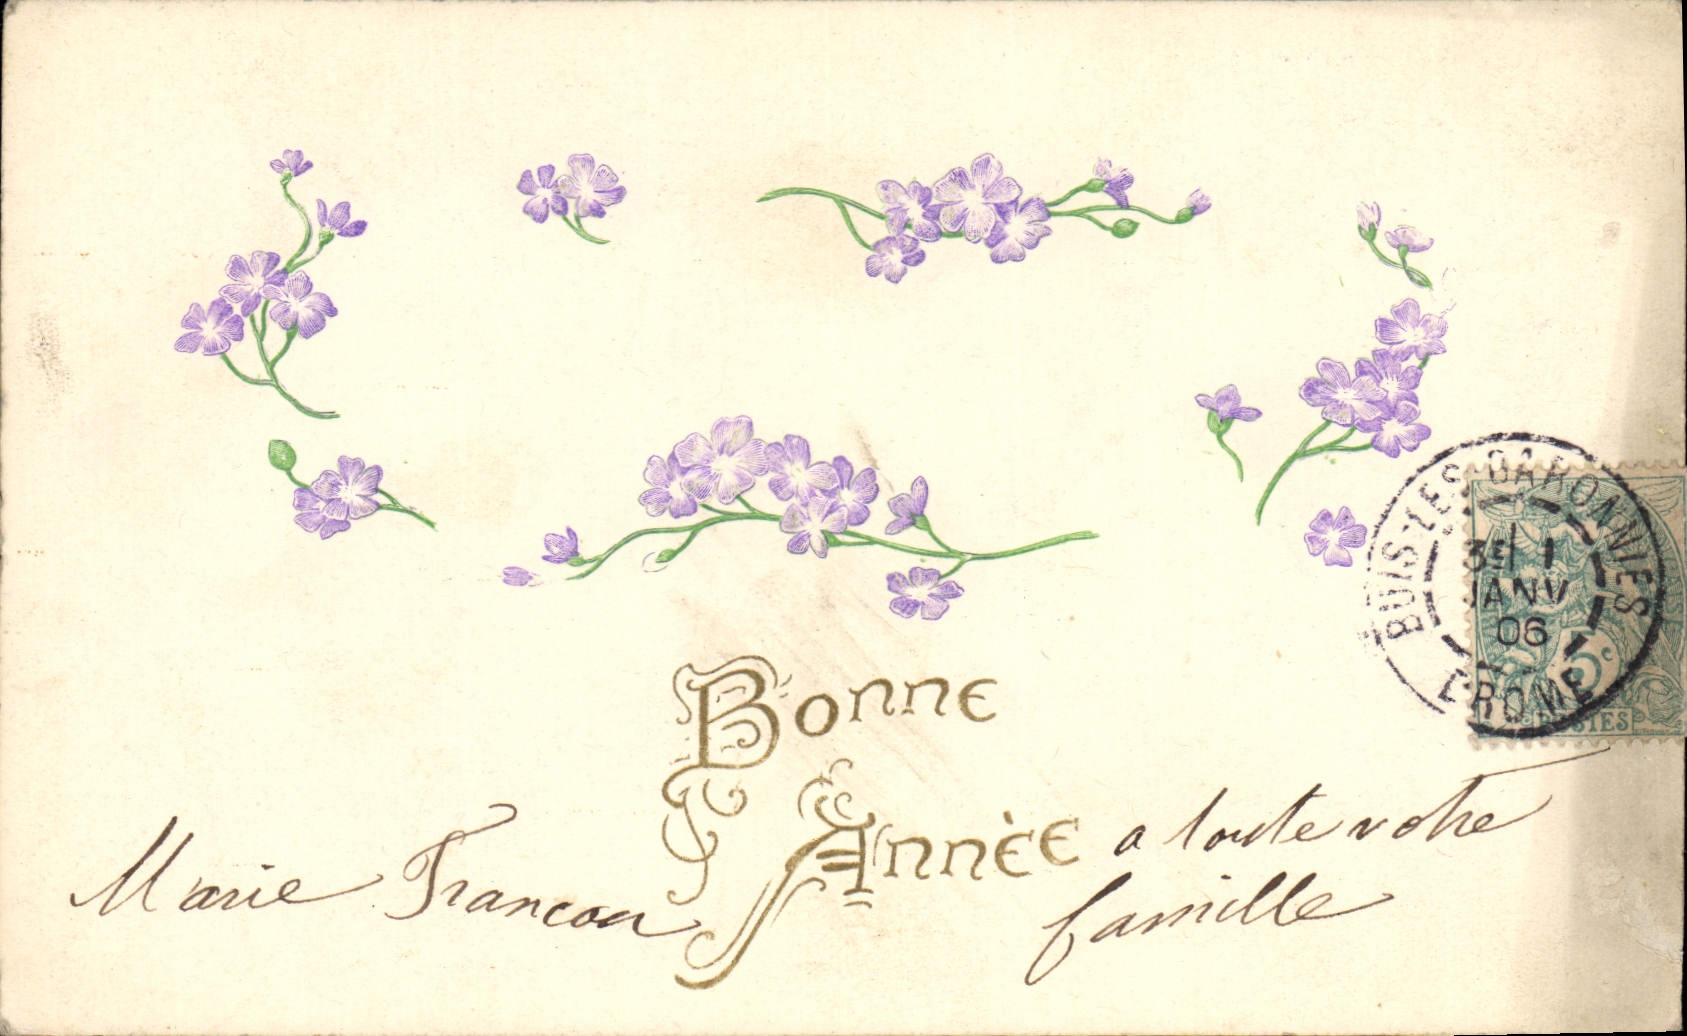 BUIS-LES-BARONNIES
3E 1
JANV
06
DROME
5c
POSTES
Bonne
Année a toute votre
famille
Marie Francou